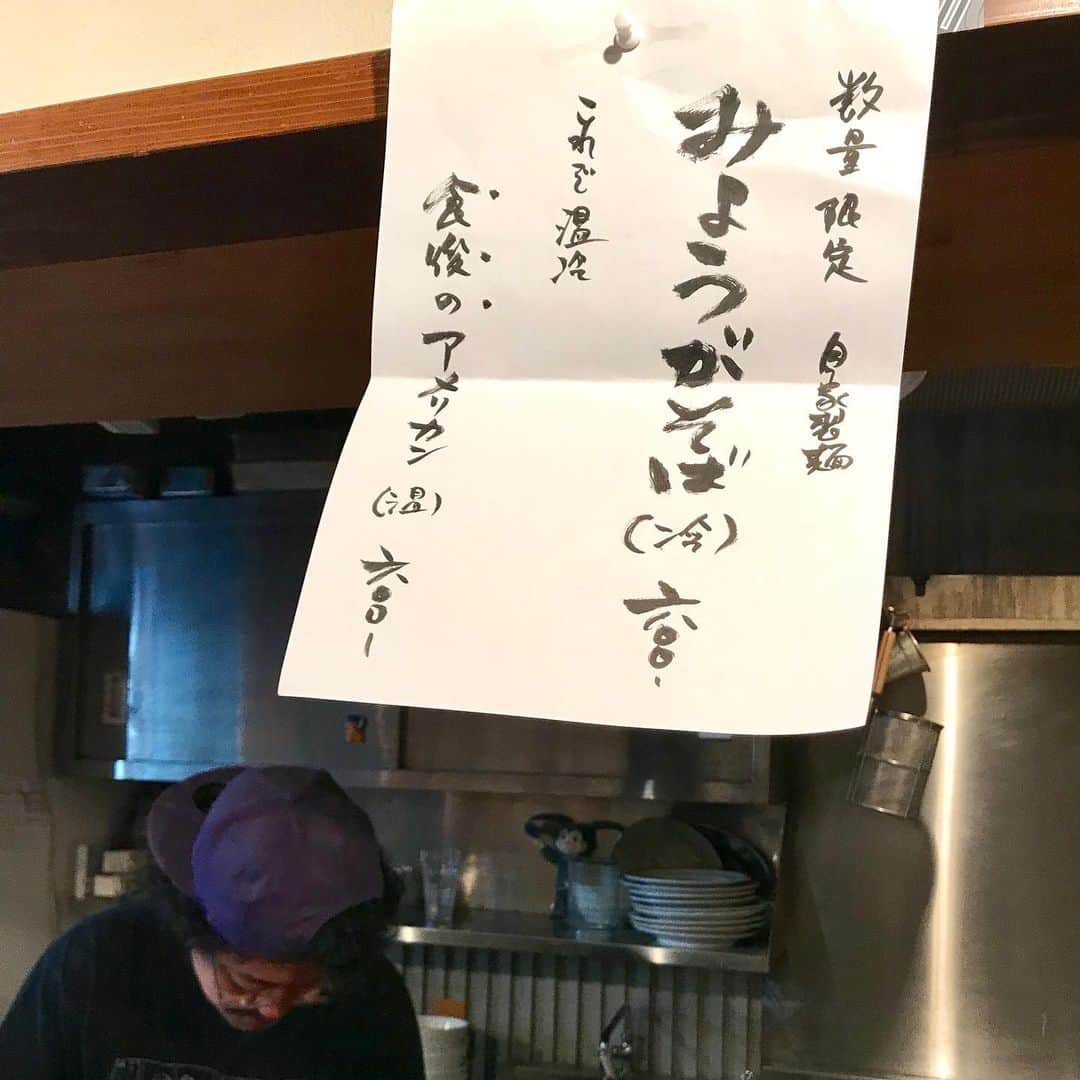 数量限定 自家製麺
みょうがそば(冷) 六〇〇-
これぞ温冷
食後のアメリカン(温) 六〇〇-